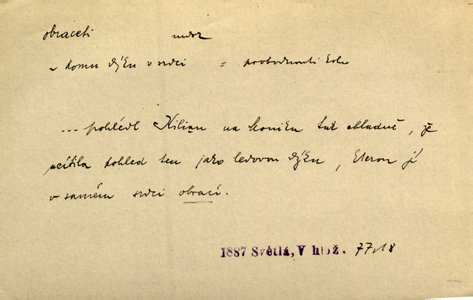 obraceti nedok
~ komu dýku v srdci = pobodnouti koho
... pohlédl Kilian na Moniku tak chladně, že
ucítila pohled ten jako ledovou dýku, kterou jí
v samém srdci obrací.
1887 Světlá, V hlož. 77,18